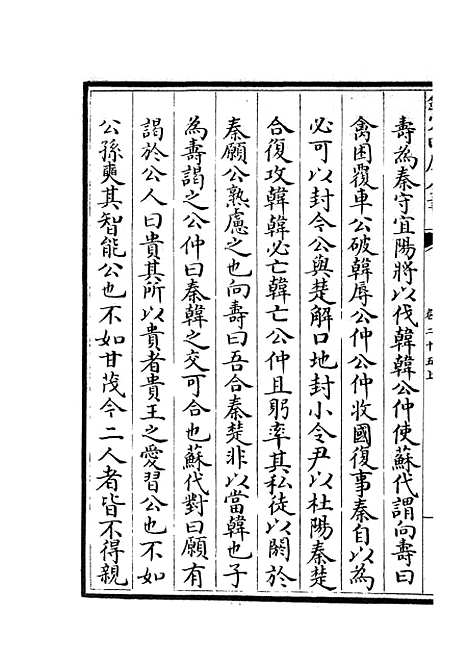 卷二十五上
壽為秦守宜陽將以伐韓韓公仲使蘇代謂向壽曰
禽困覆車公破韓辱公仲公仲收國復事秦自以為
必可以封今公與楚解口地封小令尹以杜陽秦楚
合復攻韓韓必亡韓亡公仲且躬率其私徒以閼於
秦願公熟慮之也向壽曰吾合秦楚非以當韓也子
為壽謁之公仲曰秦韓之交可合也蘇代對曰願有
謁於公人曰貴其所以貴者貴王之愛習公也不如
公孫奭其智能公也不如甘茂今二人者皆不得親